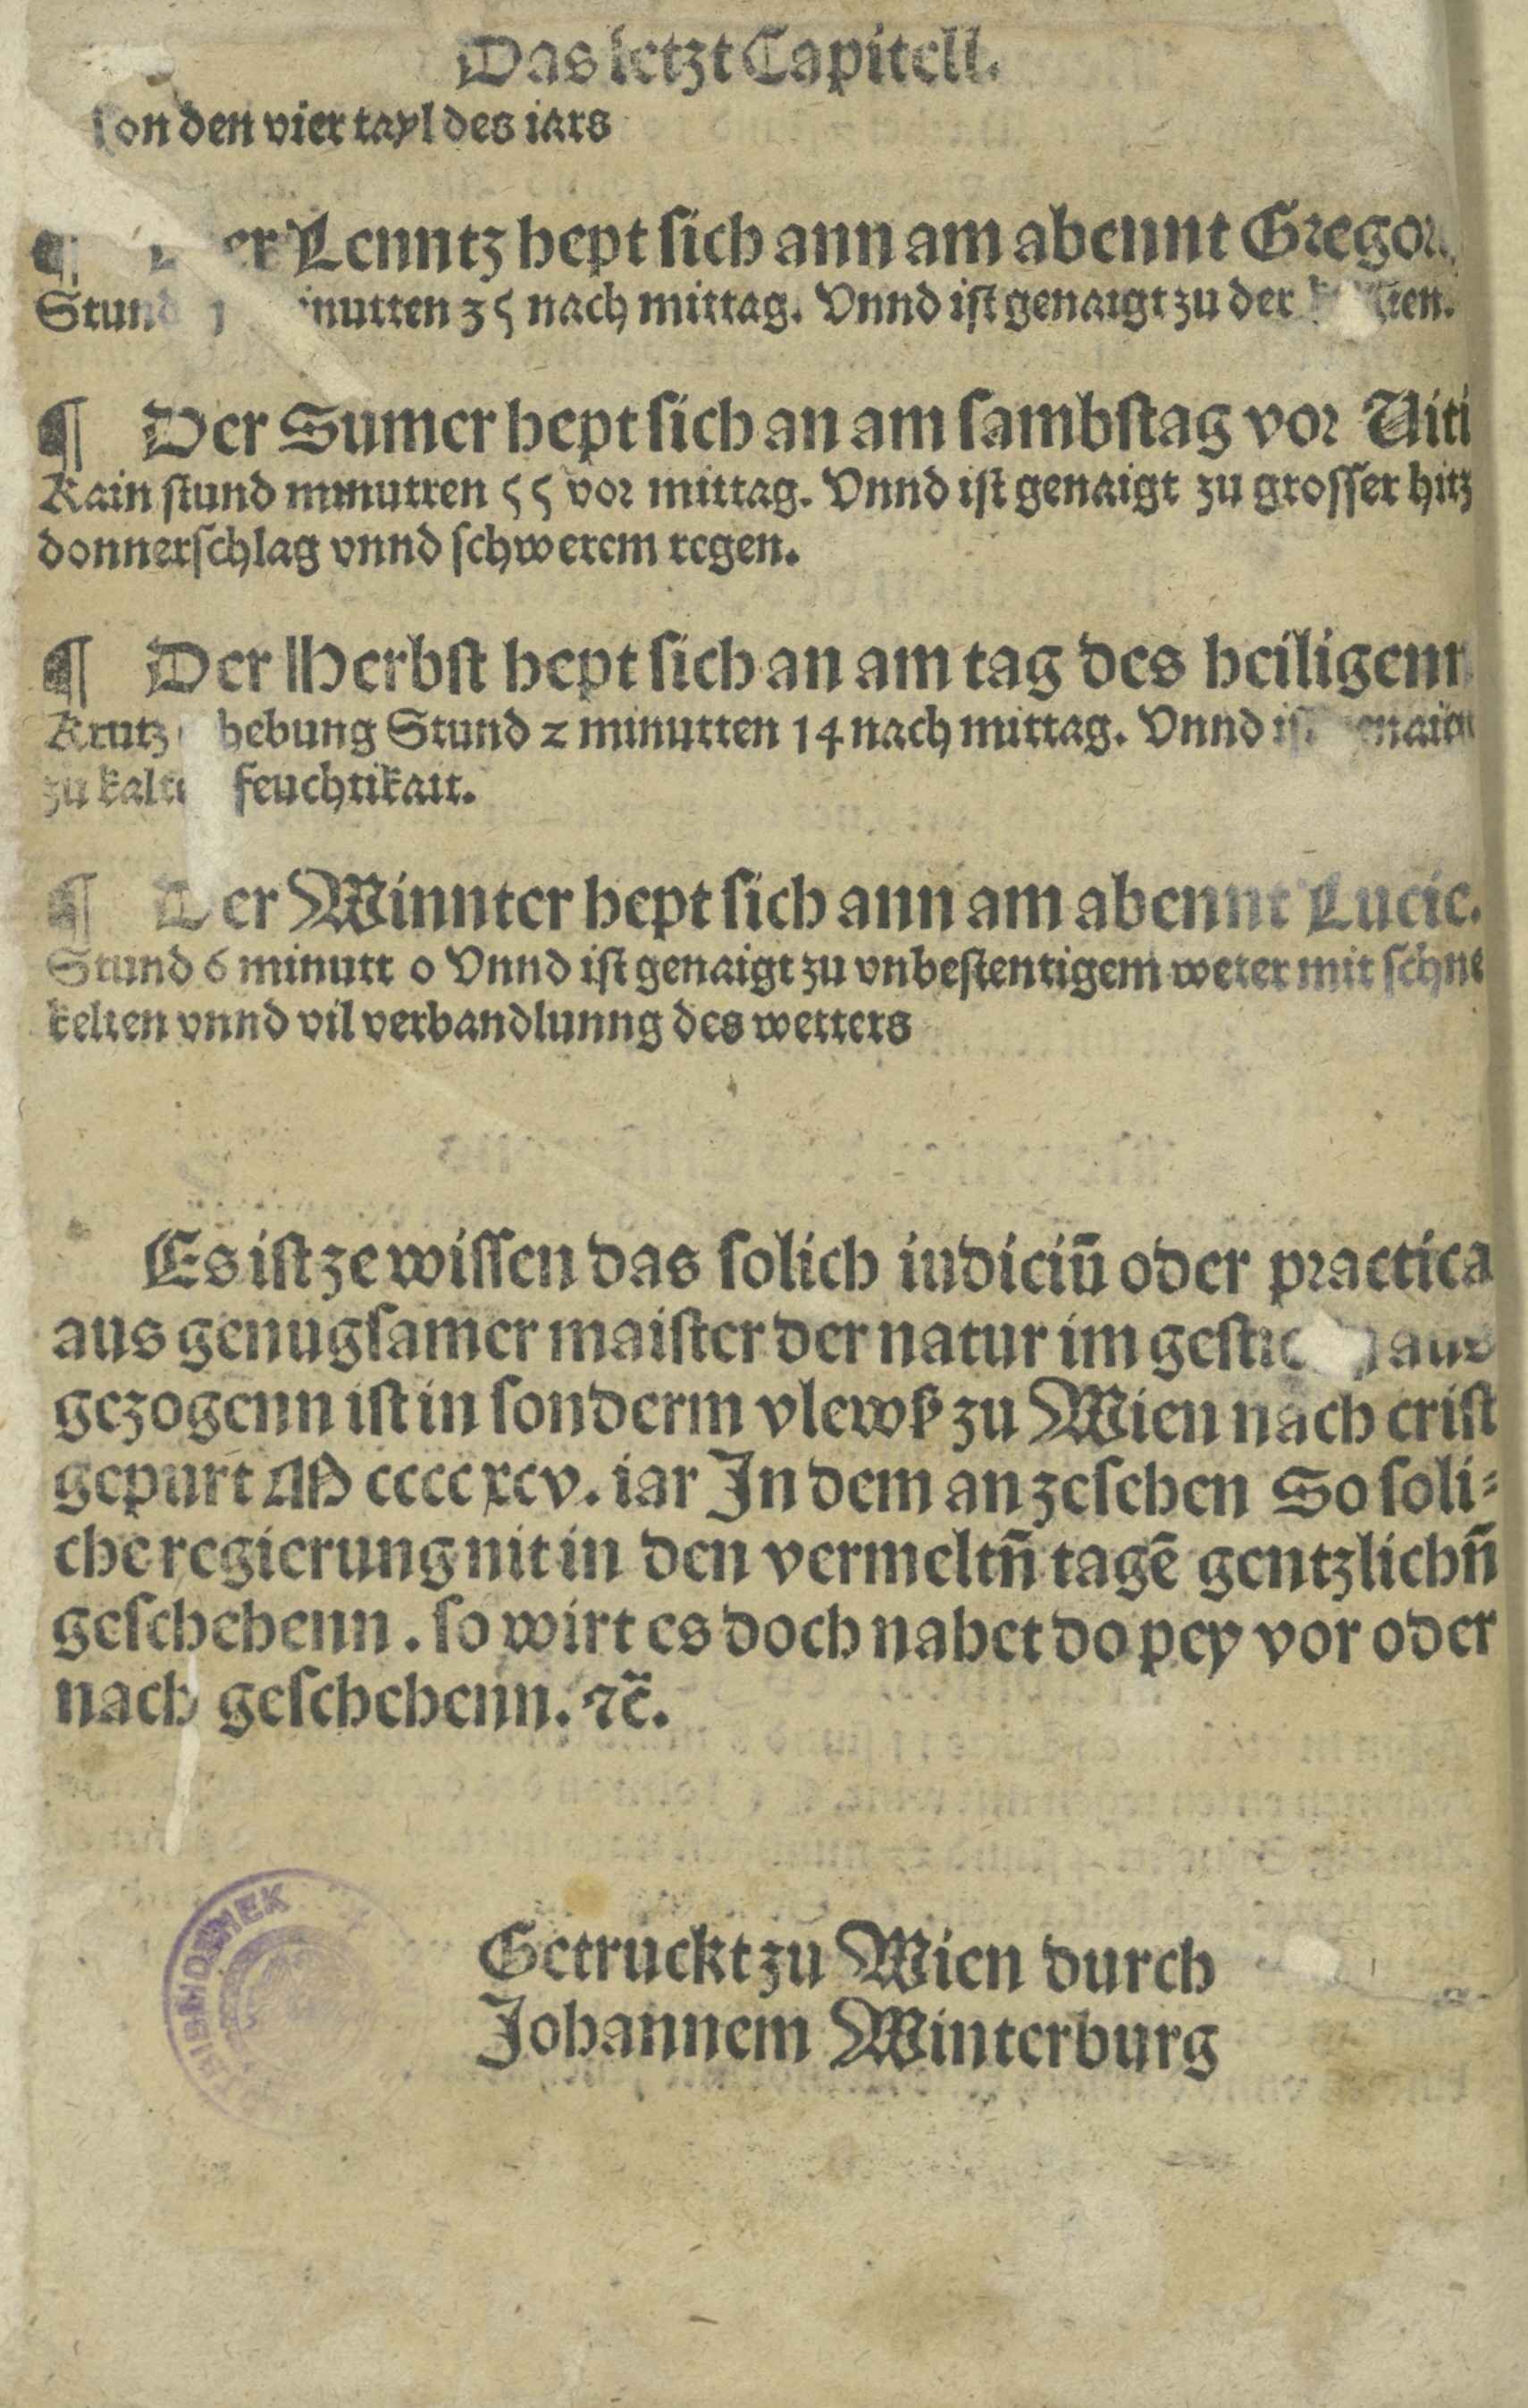 Das letzt Capitell.
on den vier tayl des iars
¶ er Lenntz hept sich ann am abennt Gregor
Stund 1 inutten 35 nach mittag. Vnnd ist genaigt zu der
¶ Der Sumer hept sich an am sambstag vor Uiti
Kain stund minutten 55 vor mittag. Vnnd ist genaigt zu grosser hitz
donnerschlag vnnd schwerem regen.
¶ Der Herbst hept sich an am tag des heiligenn
Krutz hebung Stund 2 minutten 14 nach mittag. Vnnd ist genaigt
zu kalte feuchtikait.
¶ Der Winnter hept sich ann am abennt Lucie.
Stund 6 minutt 0 Vnnd ist genaigt zu vnbestentigem weter mit schne
kelten vnnd vil verhandlunng des wetters
Es ist ze wissen das solich iudiciū oder practica
aus genugsamer maister der natur im aus
gezogenn ist in sonderm vlewß zu Wien nach crist
gepurt M cccc xcv. iar In dem an zesehen So soli⸗
che regierung nit in den vermeltn̄ tagē gentzlichn̄
geschehenn . so wirt es doch nahet do pey vor oder
nach geschehenn. ⁊c̄.
Getruckt zu Wien durch
Johannem Winterburg